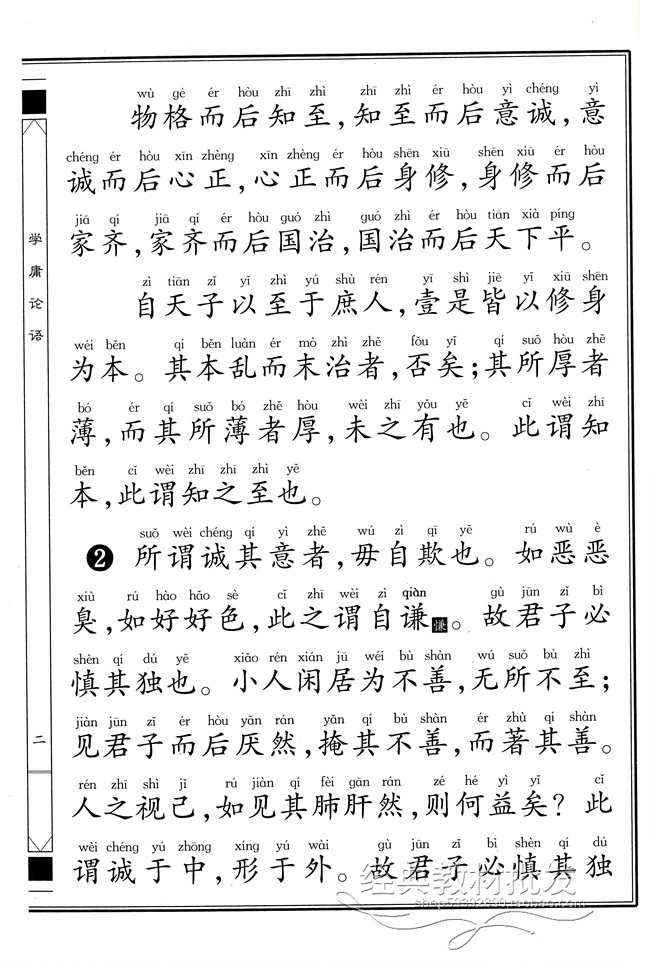 wù gé ér hòu zhī zhì zhī zhì ér hòu yì chéng yì
物格而后知至,知至而后意诚,意
chéng ér hòu xīn zhèng xīn zhèng ér hòu shēn xiū shēn xiū ér hòu
诚而后心正,心正而后身修,身修而后
jiā qí jiā qí ér hòu guó zhì guó zhì ér hòu tiān xià píng
家齐,家齐而后国治,国治而后天下平。
zì tiān zǐ yǐ zhì yú shù rén yī shì jiē yǐ xiū shēn
自天子以至于庶人,壹是皆以修身
wéi běn qí běn luàn ér mò zhì zhě fǒu yǐ qí suǒ hòu zhě
为本。其本乱而末治者,否矣;其所厚者
bó ér qí suǒ bó zhě hòu wèi zhī yǒu yě cǐ wèi zhī
薄,而其所薄者厚,未之有也。此谓知
běn cǐ wèi zhī zhī zhì yě
本,此谓知之至也。
suǒ wèi chéng qí yì zhě wú zì qī yě rú wù è
2 所谓诚其意者,毋自欺也。如恶恶
xiù rú hào hǎo sè cǐ zhī wèi zì qiàn gù jūn zǐ bì
臭,如好好色,此之谓自谦慊。故君子必
shèn qí dú yě xiǎo rén xián jū wéi bù shàn wú suǒ bù zhì
慎其独也。小人闲居为不善,无所不至;
jiàn jūn zǐ ér hòu yǎn rán yǎn qí bù shàn ér zhù qí shàn
见君子而后厌然,掩其不善,而著其善。
rén zhī shì jǐ rú jiàn qí fèi gān rán zé hé yì yǐ cǐ
人之视己,如见其肺肝然,则何益矣?此
wèi chéng yú zhōng xíng yú wài gù jūn zǐ bì shèn qí dú
谓诚于中,形于外。故君子必慎其独
学庸论语
二
经典教材批发